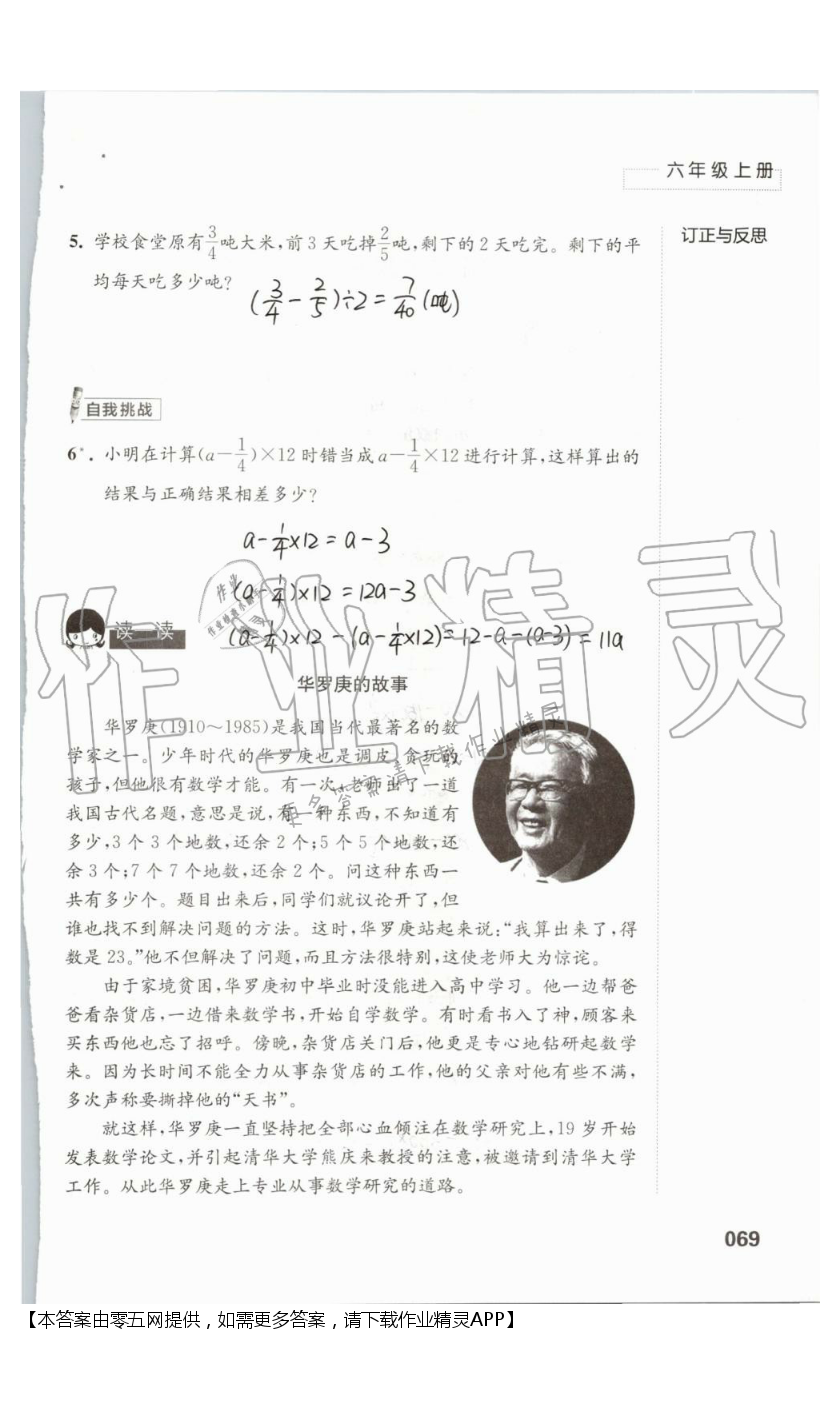 六年级上册
订正与反思
5. 学校食堂原有3/4吨大米,前3天吃掉2/5吨,剩下的2天吃完。剩下的平
均每天吃多少吨?
(3/4-2/5)÷2=7/40(吨)
自我挑战
6*. 小明在计算(a-1/4)×12时错当成a-1/4×12进行计算,这样算出的
结果与正确结果相差多少?
a-1/4×12=a-3
(a-1/4)×12=12a-3
(a-1/4)×12-(a-1/4×12)=12-a-(a-3)=11a
读一读
华罗庚的故事
华罗庚(1910~1985)是我国当代最著名的数
学家之一。少年时代的华罗庚也是调皮、贪玩的
孩子,但他很有数学才能。有一次,老师出了一道
我国古代名题,意思是说,有一种东西,不知道有
多少,3个3个地数,还余2个;5个5个地数,还
余3个;7个7个地数,还余2个。问这种东西一
共有多少个。题目出来后,同学们就议论开了,但
谁也找不到解决问题的方法。这时,华罗庚站起来说:“我算出来了,得
数是23。”他不但解决了问题,而且方法很特别,这使老师大为惊诧。
由于家境贫困,华罗庚初中毕业时没能进入高中学习。他一边帮爸
爸看杂货店,一边借来数学书,开始自学数学。有时看书入了神,顾客来
买东西他也忘了招呼。傍晚,杂货店关门后,他更是专心地钻研起数学
来。因为长时间不能全力从事杂货店的工作,他的父亲对他有些不满,
多次声称要撕掉他的“天书”。
就这样,华罗庚一直坚持把全部心血倾注在数学研究上,19岁开始
发表数学论文,并引起清华大学熊庆来教授的注意,被邀请到清华大学
工作。从此华罗庚走上专业从事数学研究的道路。
069
作业精灵
更多答案请下载作业精灵
【本答案由零五网提供，如需更多答案，请下载作业精灵APP】